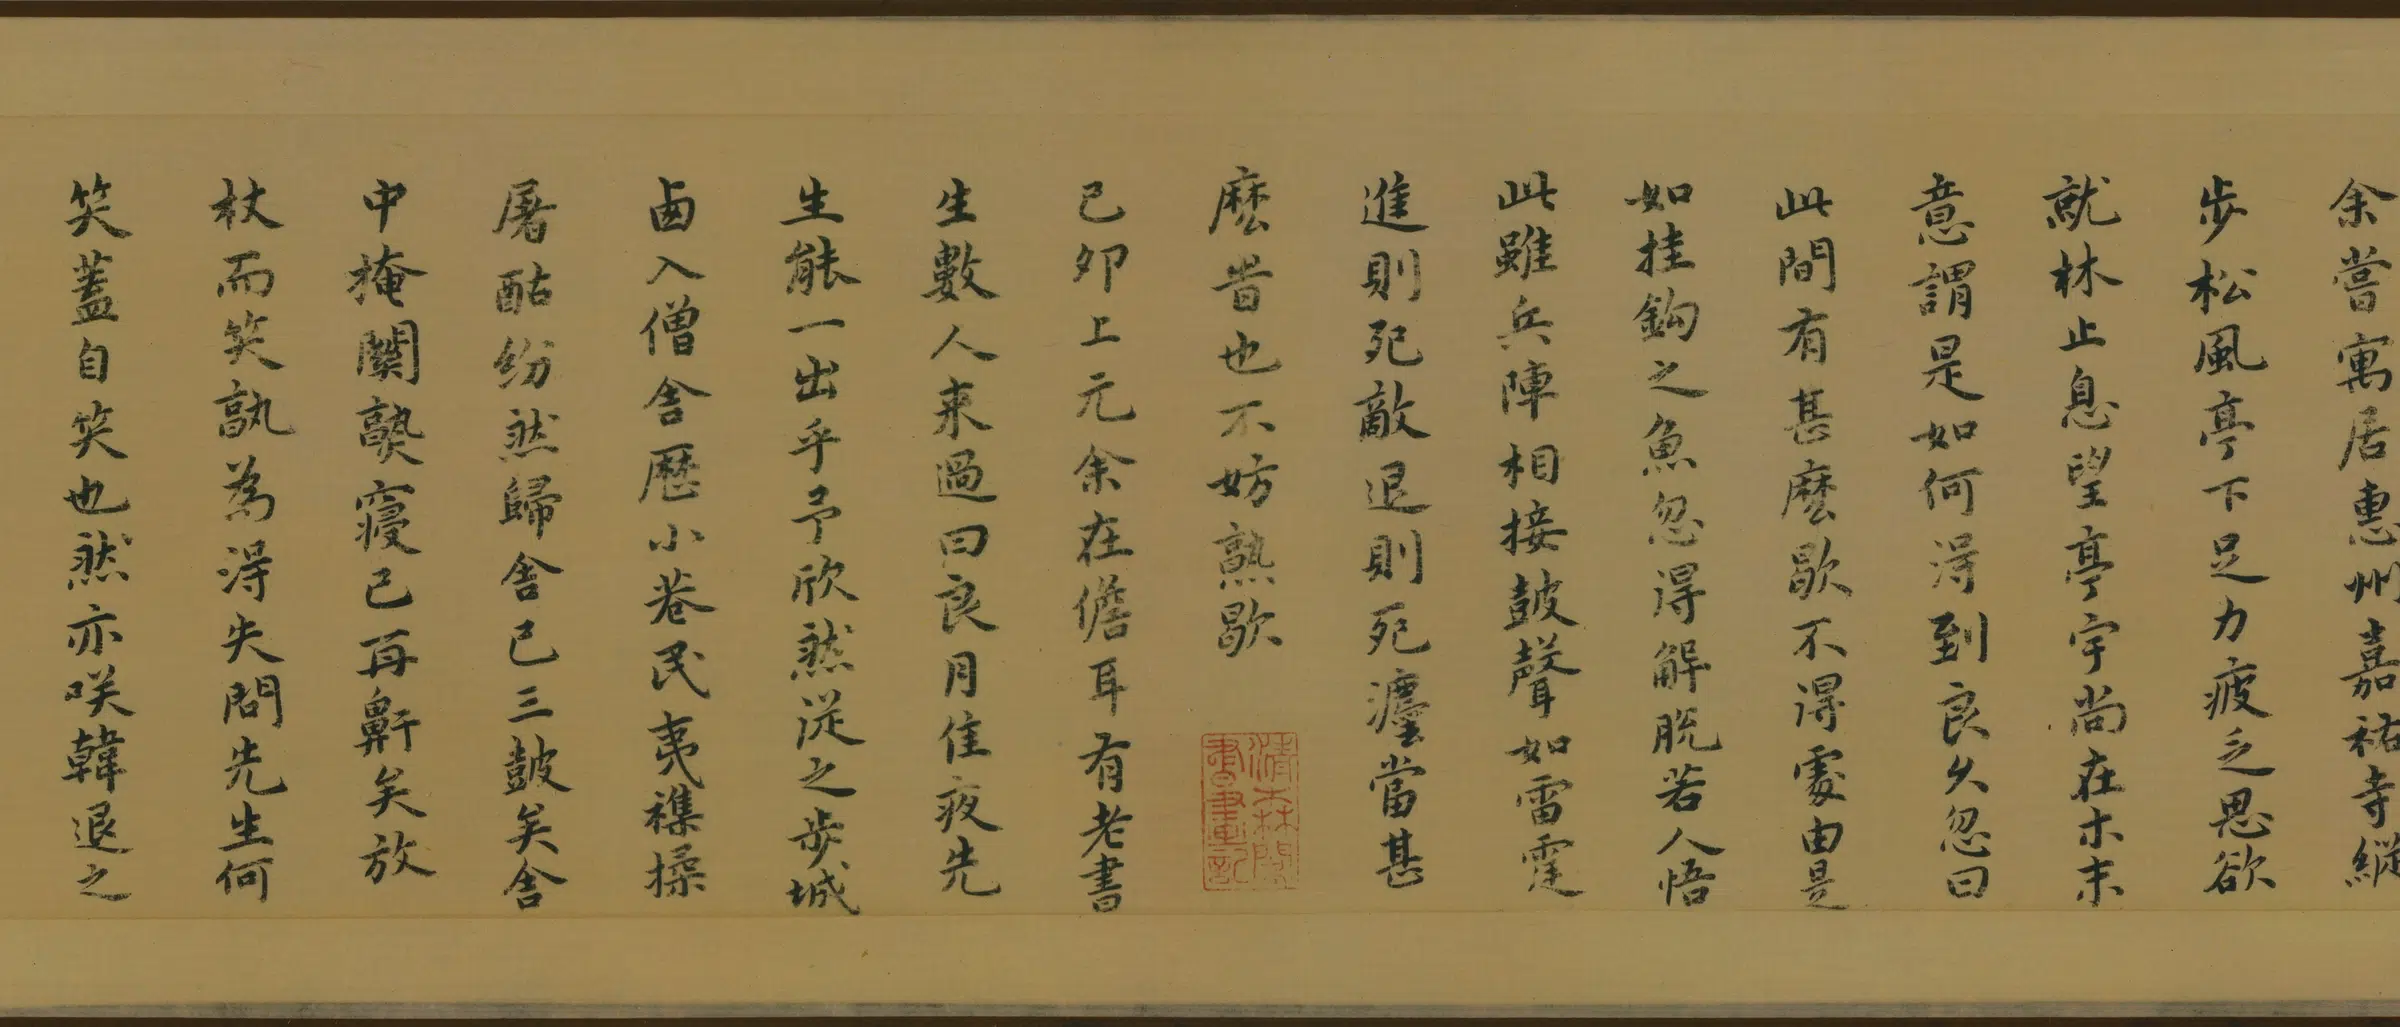 余嘗寓居惠州嘉祐寺縱
步松風亭下足力疲乏思欲
就林止息望亭宇尚在木末
意謂是如何得到良久忽曰
此間有甚麼歇不得處由是
如挂鈎之魚忽得解脫若人悟
此雖兵陣相接鼓聲如雷霆
進則死敵退則死瀍當甚
麼昔也不妨熟歇
清森閣書畫記
己卯上元余在儋耳有老書
生數人來過曰良月佳夜先
生能一出乎予欣然從之步城
西入僧舍歷小巷民夷襍揉
屠酤紛然歸舍已三鼓矣舍
中掩關熟寢已再鼾矣放
杖而笑孰為得失問先生何
笑蓋自笑也然亦咲韓退之